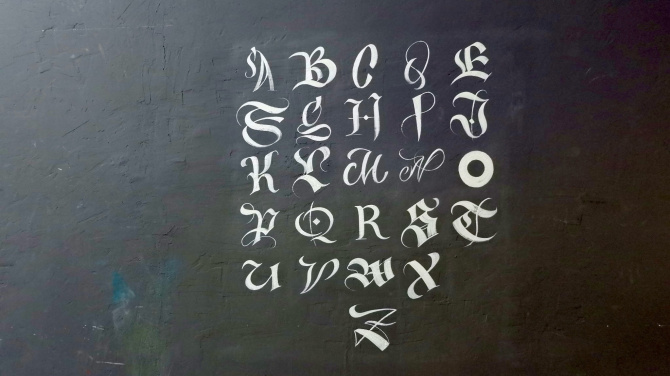 A B C D E
F G H I J
K L M N O
P Q R S T
U V W X
Z